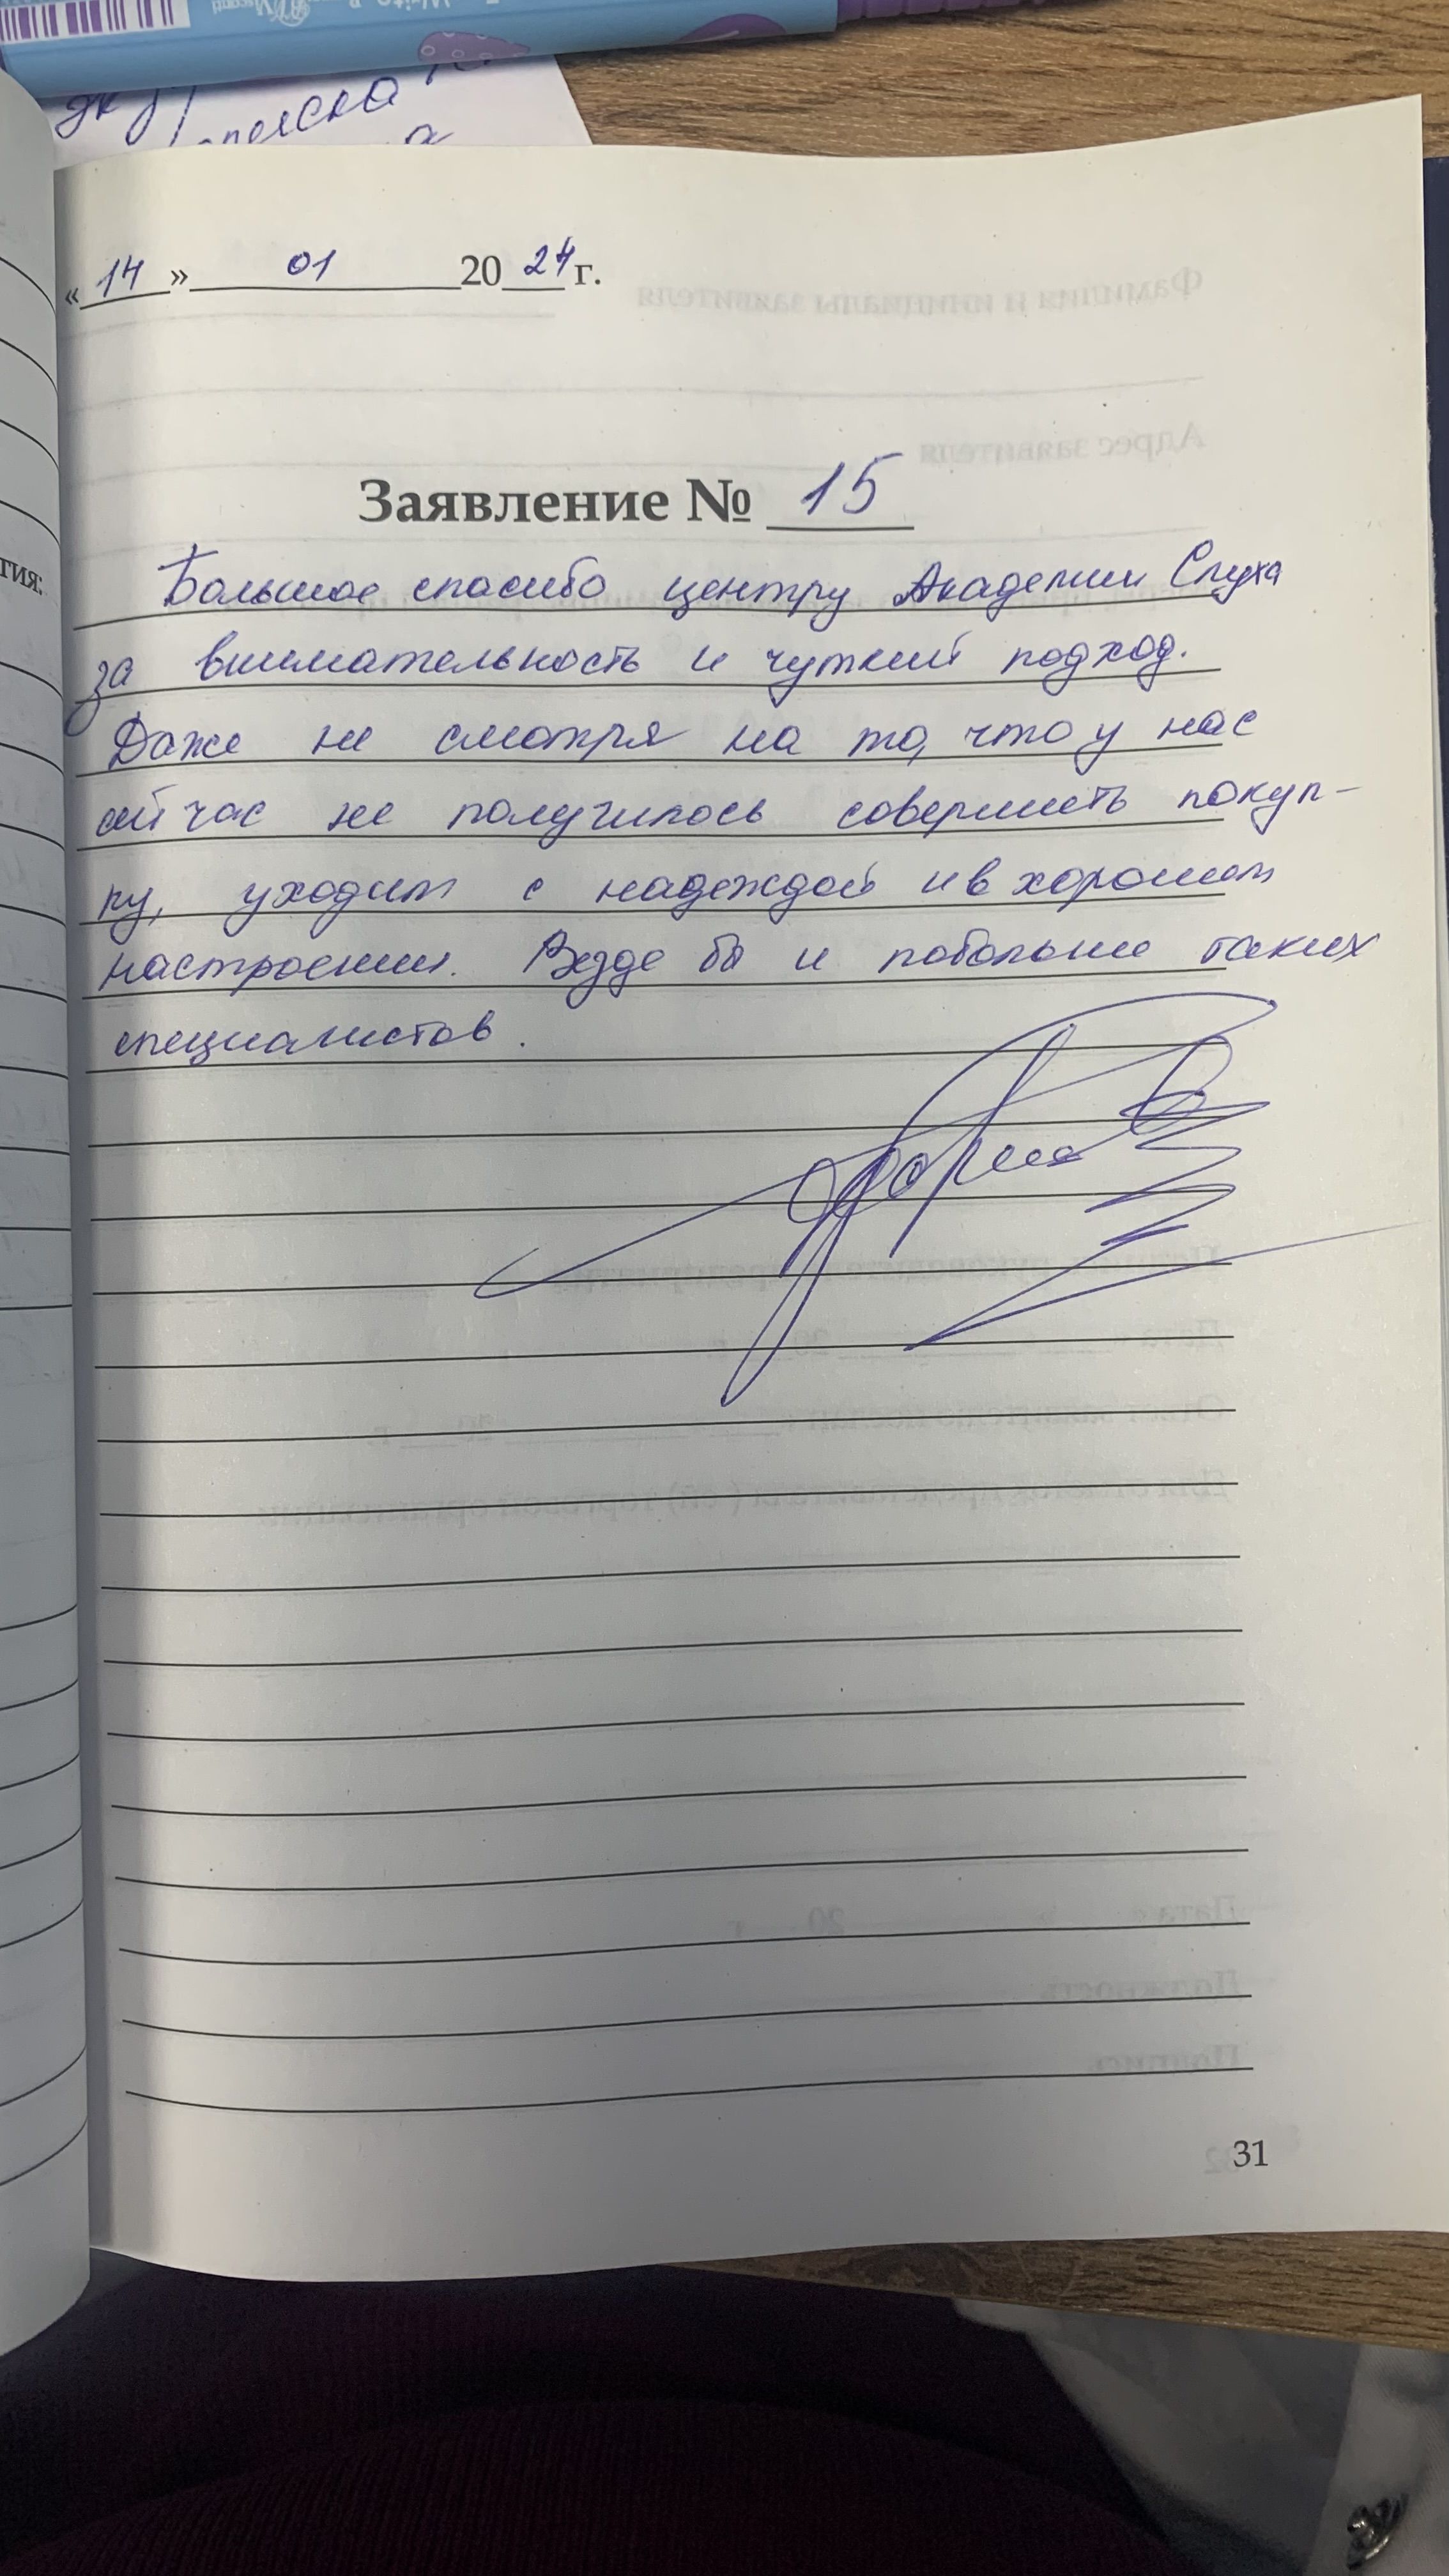 «14» 01 2024 г.
Заявление № 15
Большое спасибо центру Академии Слуха
за внимательность и чуткий подход.
Даже не смотря на то, что у нас
сейчас не получилось совершить покуп-
ку, уходим с надеждой и в хорошем
настроении. Везде бы и побольше таких
специалистов.
31